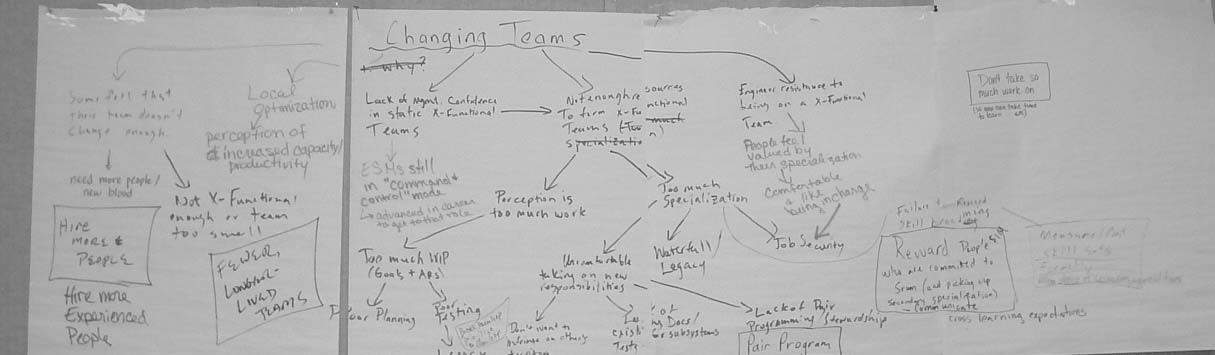 Changing Teams
why?
Some feel that
their team doesn't
change enough.
need more people/
new blood
Hire
more &
People
Hire more
Experienced
People
Local
optimization
perception of
increased capacity/
productivity
Not X-Functional
enough or team
too small
Fewer,
Longer-
Lived
Teams
Lack of Mgmt. Confidence
in static X-Functional
Teams
ESMs still
in "command &
control" mode
advanced in career
to get to that role
Not enough re sources
To firm X-Fu nctional
Teams (Too much
specializatio n)
Perception is
too much work
Too much WIP
(Goals + APs)
Poor Planning
Poor
Testing
Too much
Specialization
Waterfall/
Legacy
Job Security
Uncomfortable
taking on new
responsibilities
Don't want to
infringe on others
existi
Tests
Docs/
subsystems
Lack of Pair
Programming/Stewardship
Pair Program
Engineer resistance to
being on a X-Functional
Team
People feel
valued by
their specialization
Comfortable
& like
being in charge
Don't take so
much work on
Failure to Reward
skill broadening
Reward People
who are committed to
Scrum (and picking up
secondary specialization)
- communicate
cross learning expectations
Measure/
skill sets